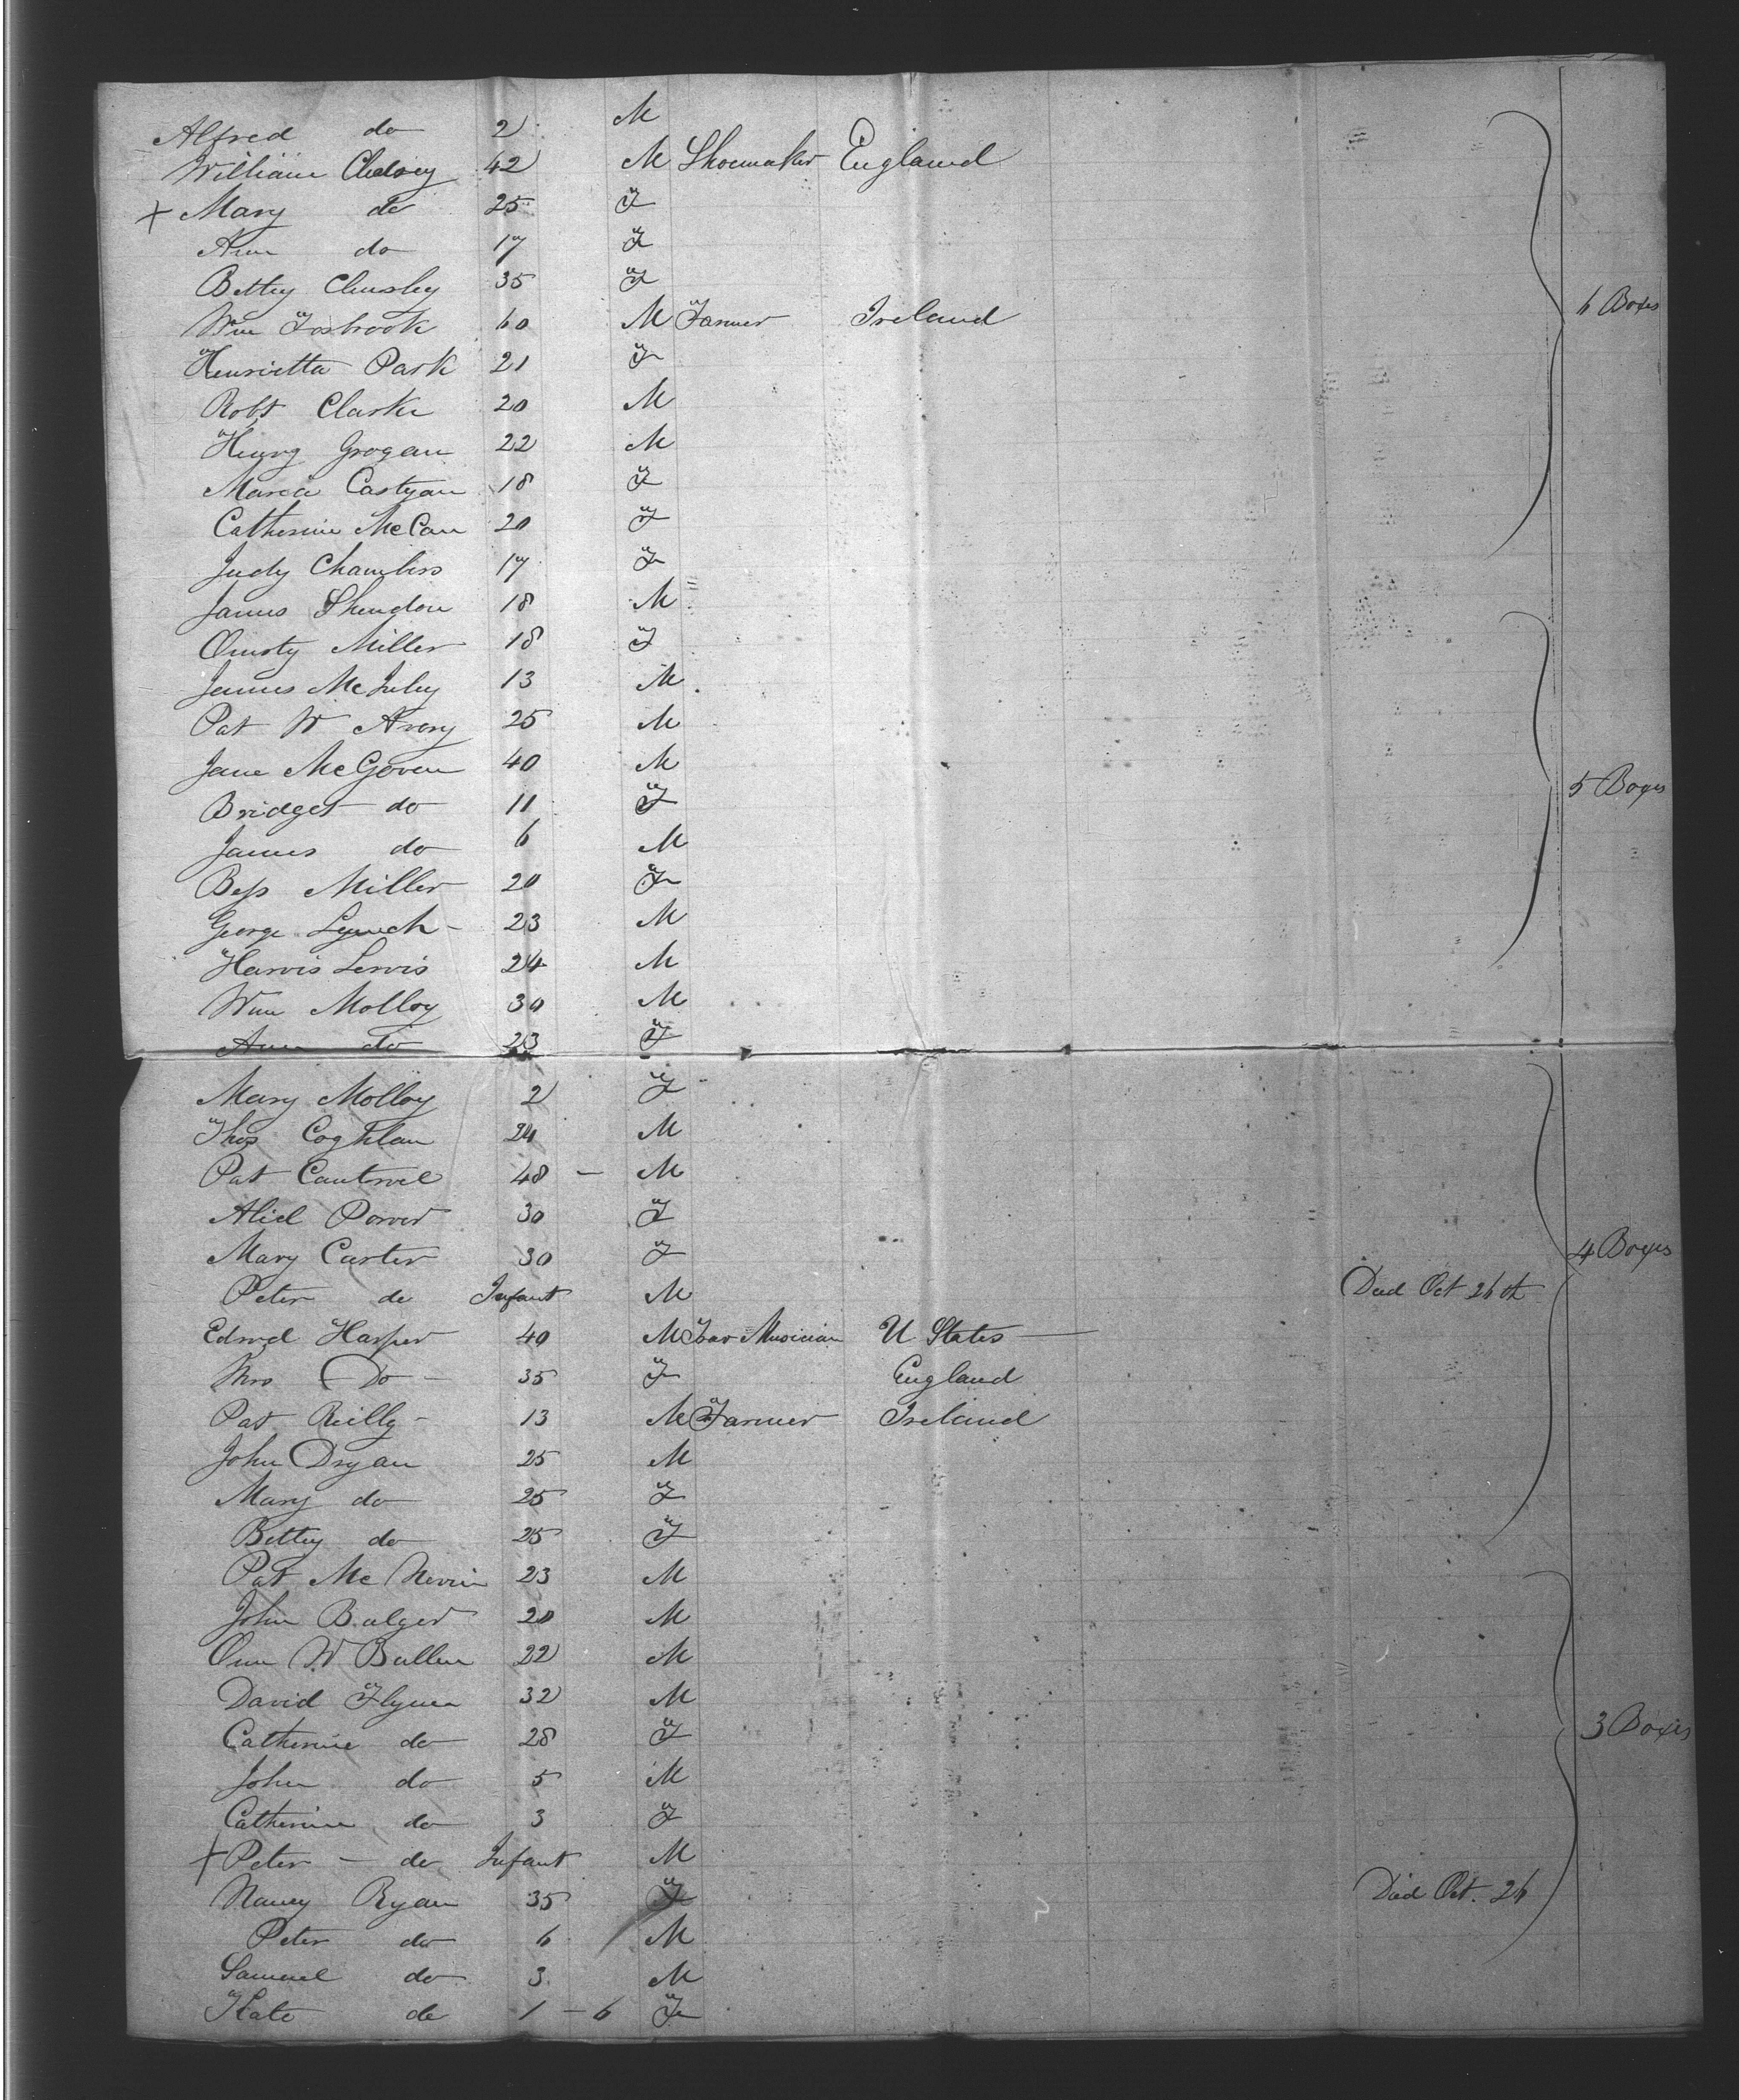 Alfred do 2 M
William Chelsey 42 M Shoemaker England
+ Mary do 25 F
Ann do 17 F
Bettey Chursley 35 F
Wm Fosbrook 60 M Farmer Ireland
6 Boxes
Henrietta Park 21 F
Robt Clarke 20 M
Henry Grogan 22 M
Maria Castyan 18 F
Catherine McCan 20 F
Judy Chambers 17 F
James Shendon 18 M
Miller 18 F
James McJuley 13 M
Pat W Avory 25 M
Jane McGoven 40 M
5 Boxes
Bridget do 11 F
James do 6 M
Bess Miller 20 F
George Lynch - 23 M
Harvis Lervis 24 M
Wm Molloy 30 M
Ann do 23 F
Mary Molloy 2 F
Thos Coghlan 24 M
Pat Cantrvel 48 - M
Alicl Power 30 F
Mary Carter 30 F
4 Boxes
Peter do Infant M Died Oct 26th
Edwd Harper 40 M Musician U States -
Mrs Do - 35 F England
Pat Reilly - 13 M Farmer Ireland
John Dryan 25 M
Mary do 25 F
Bettey do 25 F
Pat McNevin 23 M
John Balger 20 M
Own W Bullen 22 M
David Flynn 32 M
Catherine do 28 F
3 Boxes
John do 5 M
Catherine do 3 F
+ Peter - do Infant M
Died Oct. 26
Nancy Ryan 35 F
Peter do 6 M
Samuel do 3 M
Kate do 1 - 6 F